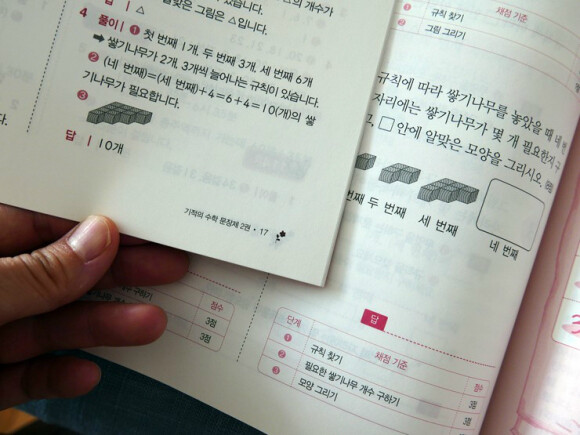 스의 개수가
알맞은 그림은 △입니다.
답 | △
4 풀이 | ❶ 첫 번째 1개, 두 번째 3개, 세 번째 6개
➡ 쌓기나무가 2개, 3개씩 늘어나는 규칙이 있습니다.
❷ (네 번째)=(세 번째)+4=6+4=10(개)의 쌓
기나무가 필요합니다.
❸
답 | 10개
니다.
기적의 수학 문장제 2권 • 17
채점 기준
❶ 규칙 찾기
❷ 그림 그리기
규칙에 따라 쌓기나무를 놓았을 때 네 번
자리에는 쌓기나무가 몇 개 필요한지 구
고, □ 안에 알맞은 모양을 그리시오.
번째 두 번째 세 번째 네 번째
구하기
점수
3점
3점
답
단계 채점 기준 점수
❶ 규칙 찾기
❷ 필요한 쌓기나무 개수 구하기 3점
❸ 모양 그리기 3점